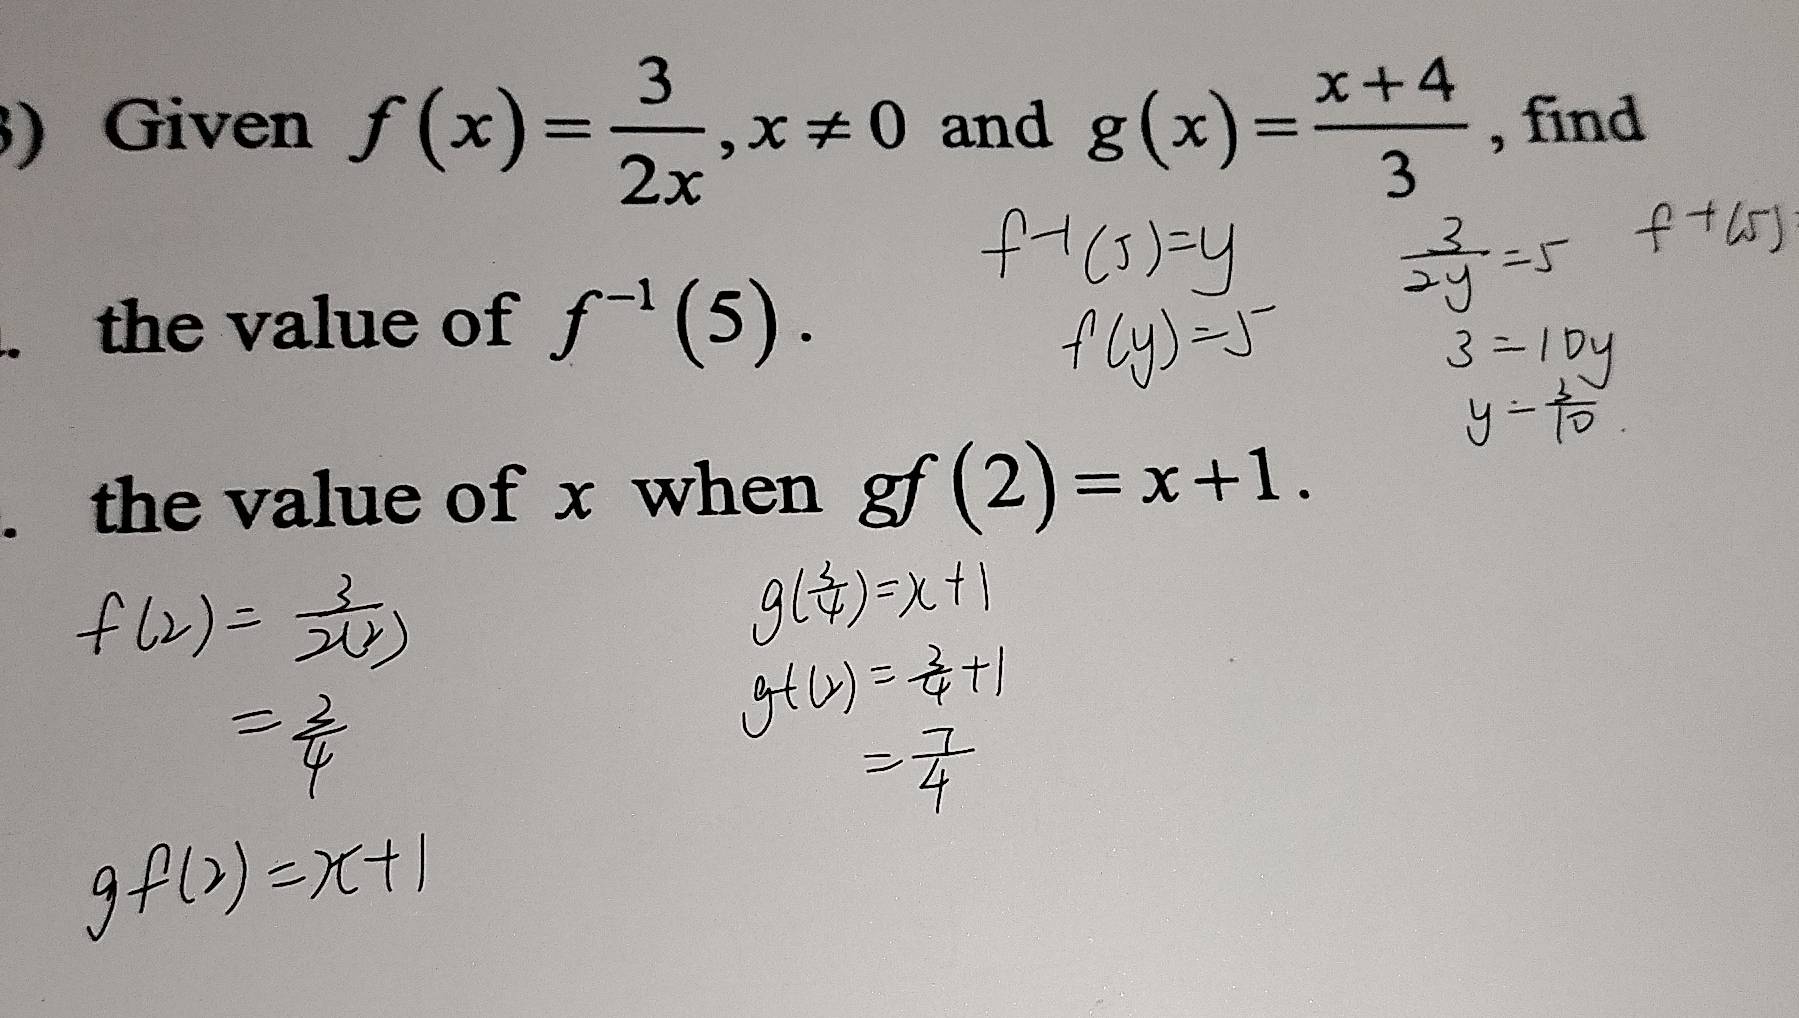 3) Given f(x) = 3/2x, x ≠ 0 and g(x) = x+4/3, find
. the value of f⁻¹(5).
f⁻¹(5)=y
f(y)=5
3/2y = 5
3=10y
y=3/10.
f⁻¹(5)=
. the value of x when gf(2) = x+1.
f(2) = 3/2(2)
= 3/4
gf(2)=x+1
g(3/4)=x+1
gf(2) = 3/4+1
= 7/4